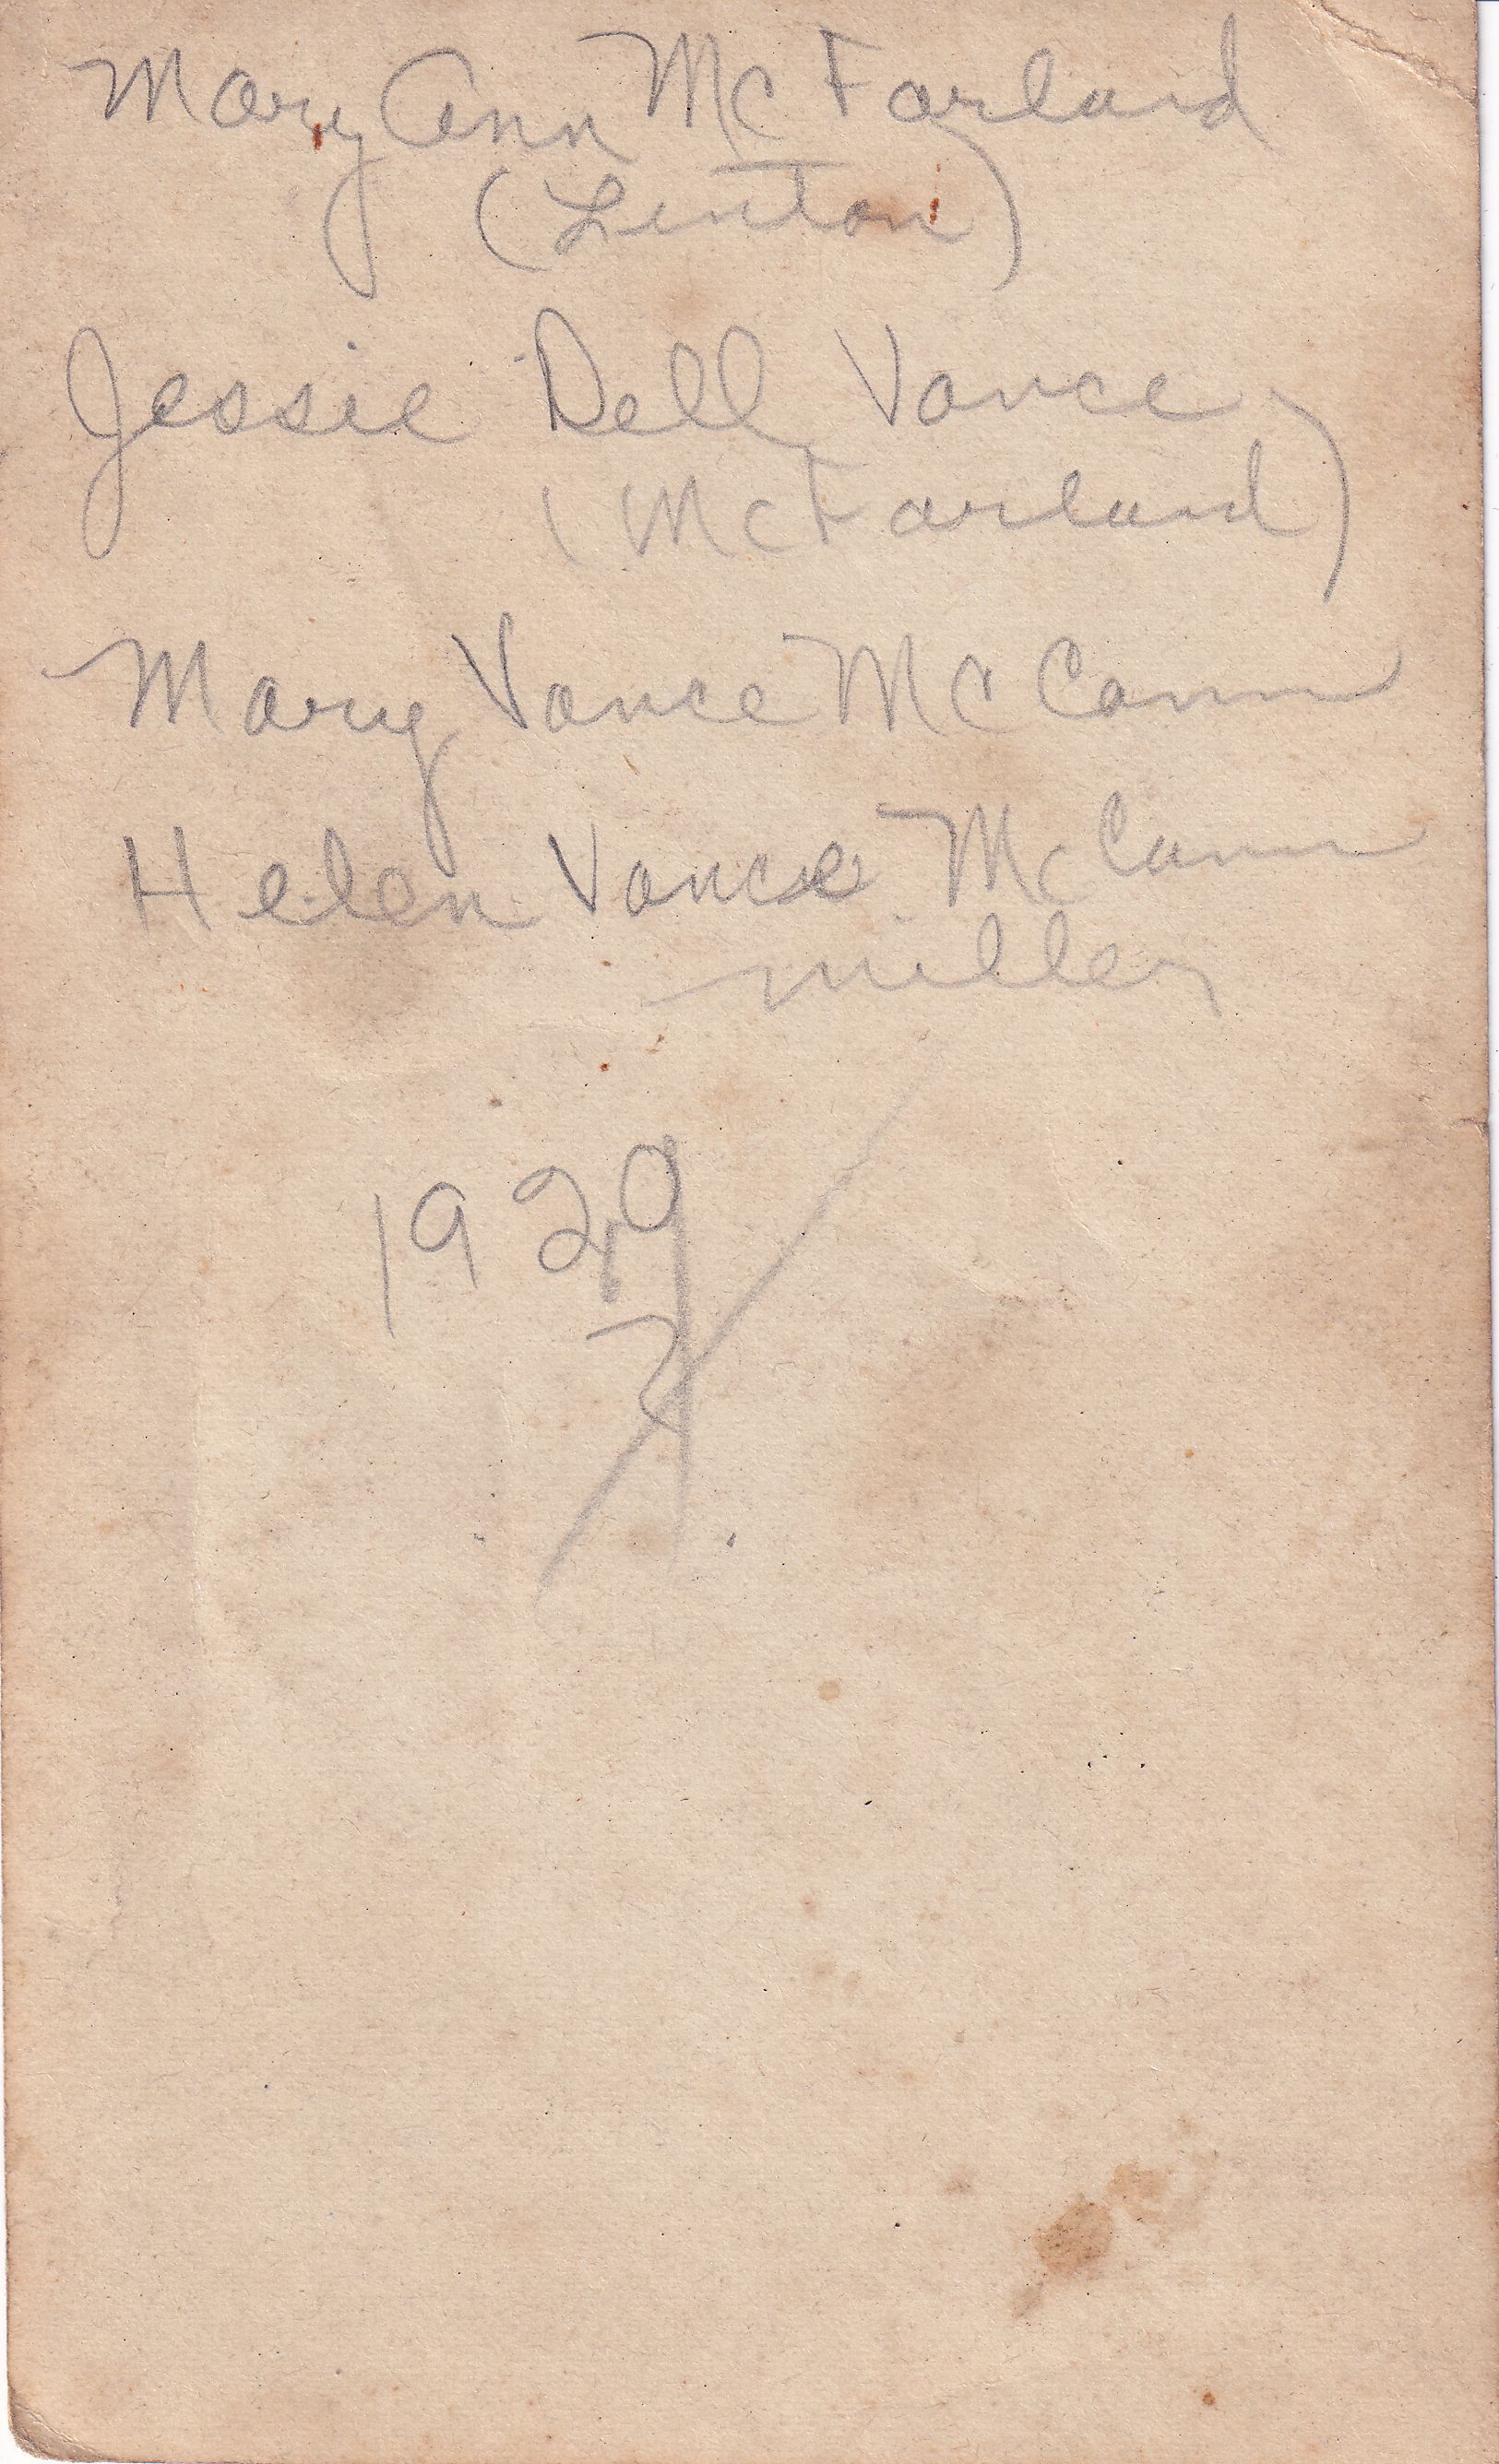 Mary Ann McFarland
(Linton)
Jessie Dell Vance
(McFarland)
Mary Vance McCann
Helen Vance McCann
Miller
1929